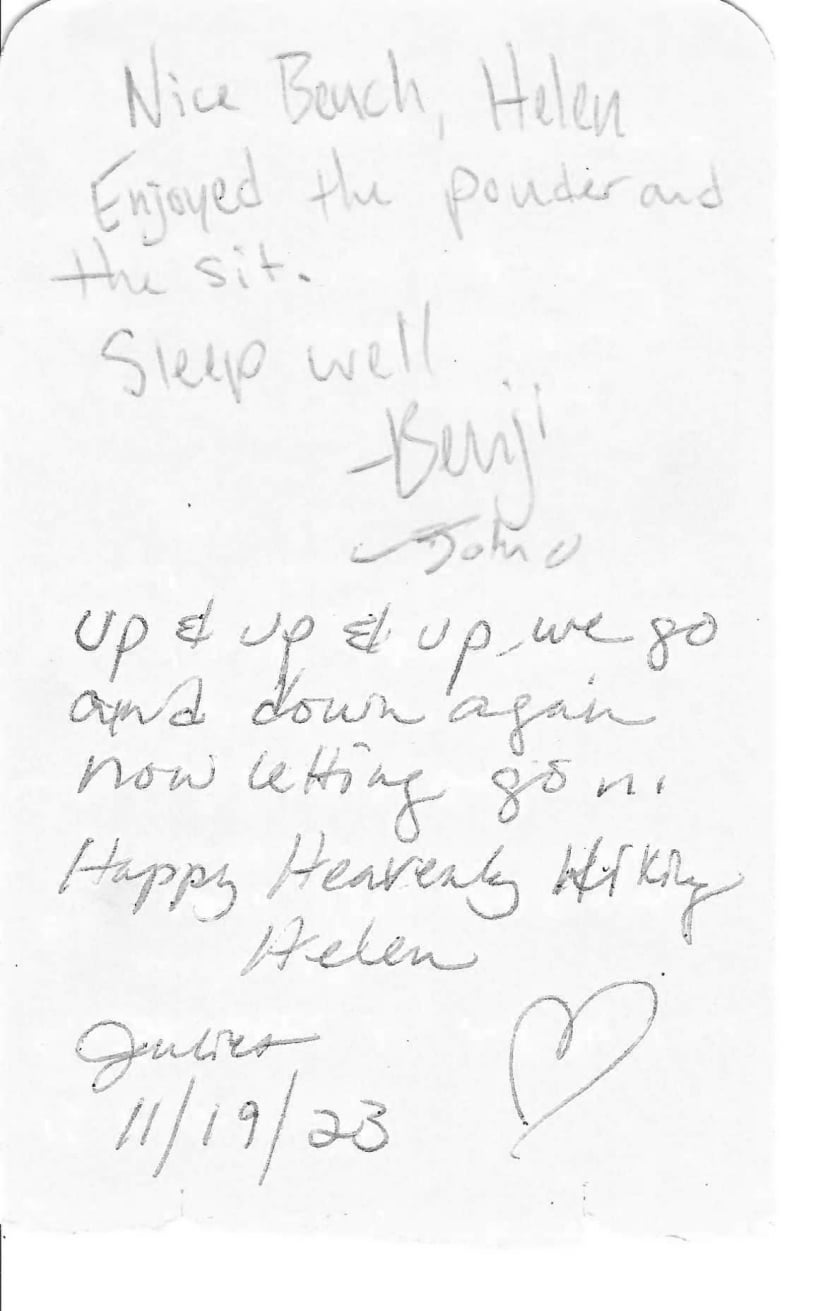 Nice Bench, Helen
Enjoyed the ponder and
the sit.
Sleep well
-Benji
John
Up & up & up we go
and down again
now letting go
Happy Heavenly Hiking
Helen
11/19/23